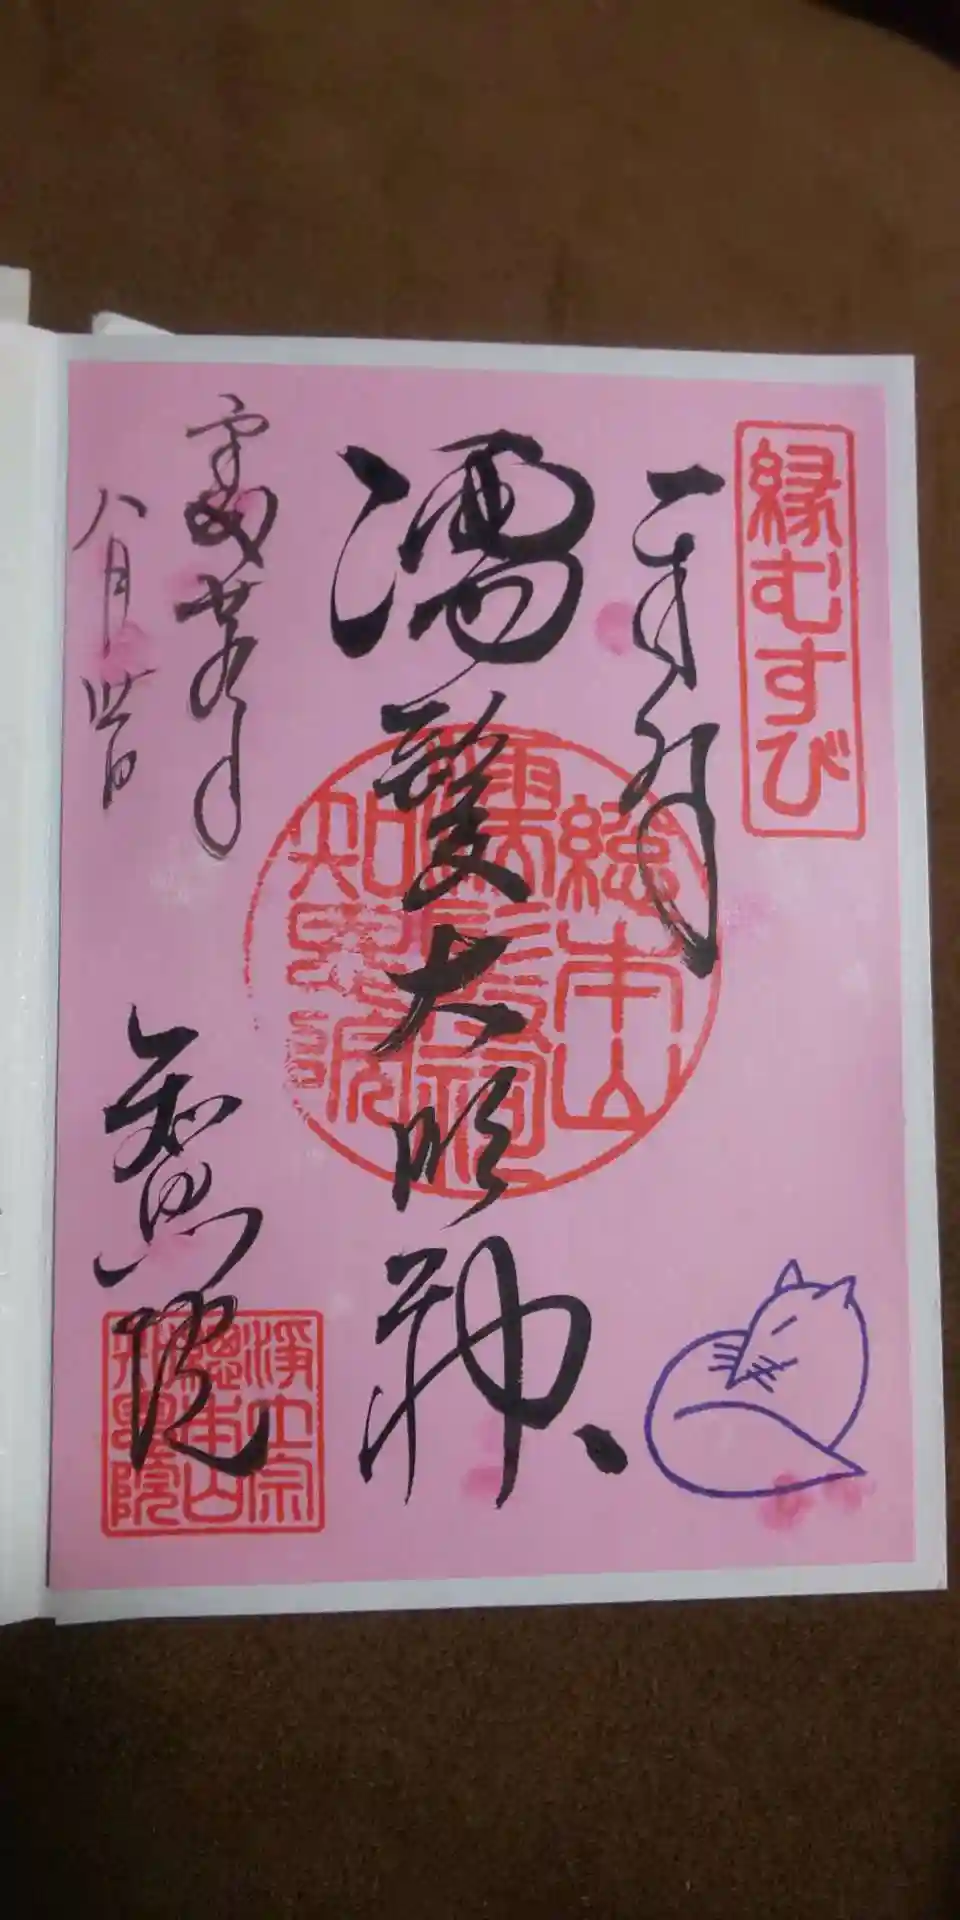 縁むすび
奉拝
濡髪大明神
総本山
濡髪祠
知恩院
八月
知恩院
浄土宗
總本山
知恩院